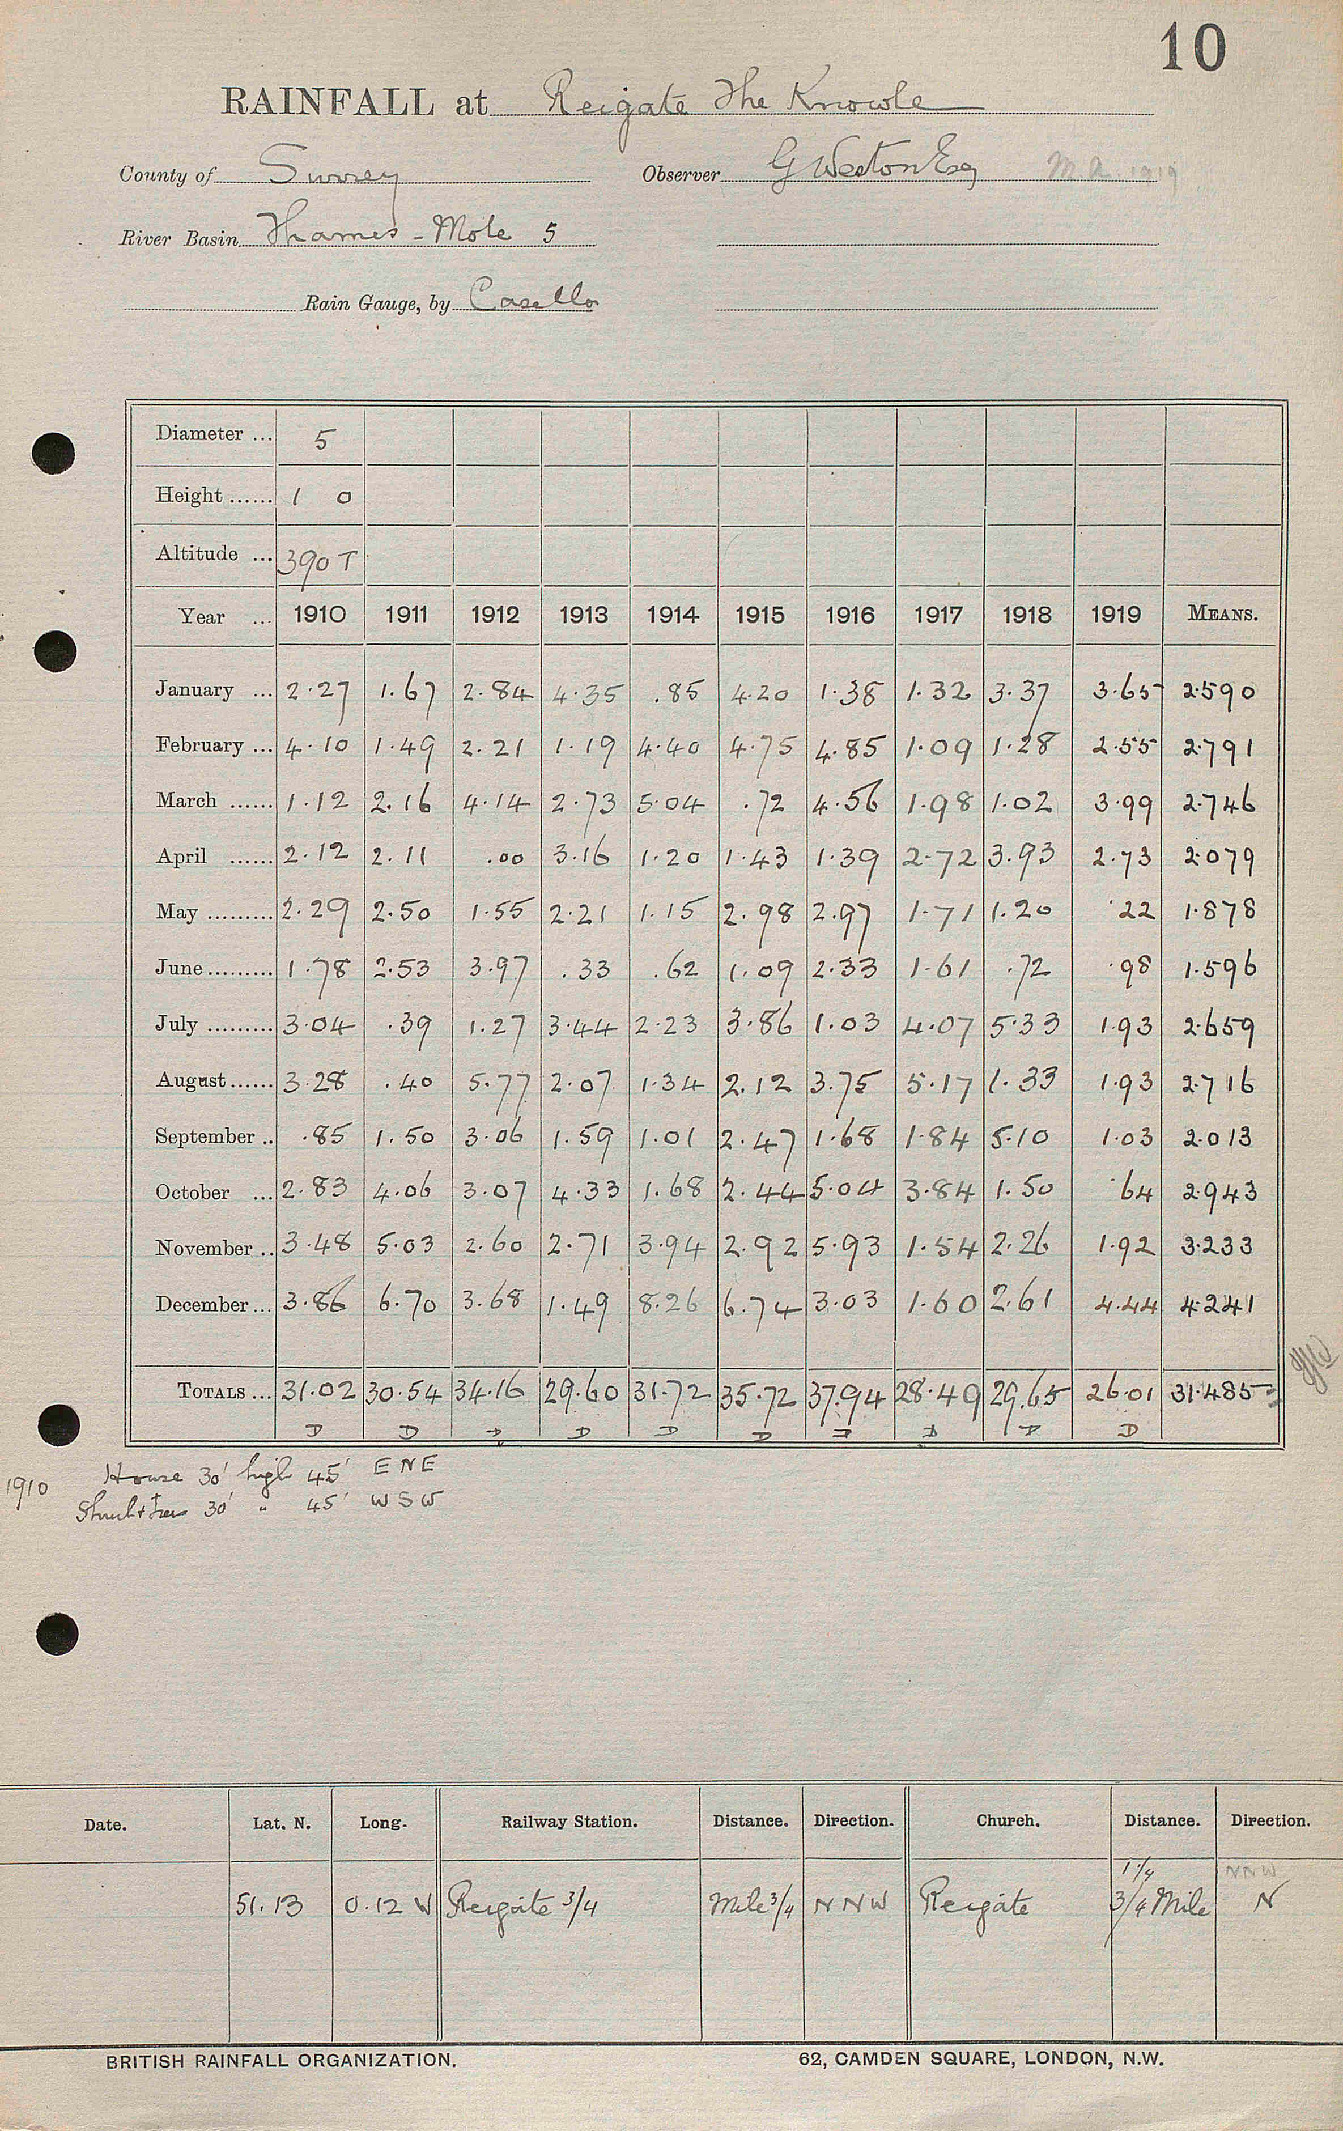 10
RAINFALL at Reigate The Knowle
County of Surrey Observer G Weston Esq M.A. 1919
River Basin Thames - Mole 5
Rain Gauge, by Casella
Diameter ... 5
Height ...... 1 0
Altitude ... 390 T
Year ... 1910 1911 1912 1913 1914 1915 1916 1917 1918 1919 MEANS.
January ... 2.27 1.67 2.84 4.35 .85 4.20 1.38 1.32 3.37 3.65 2.590
February ... 4.10 1.49 2.21 1.19 4.40 4.75 4.85 1.09 1.28 2.55 2.791
March ...... 1.12 2.16 4.14 2.73 5.04 .72 4.56 1.98 1.02 3.99 2.746
April ...... 2.12 2.11 .00 3.16 1.20 1.43 1.39 2.72 3.93 2.73 2.079
May ......... 2.29 2.50 1.55 2.21 1.15 2.98 2.97 1.71 1.20 .22 1.878
June ......... 1.78 2.53 3.97 .33 .62 1.09 2.33 1.61 .72 .98 1.596
July ......... 3.04 .39 1.27 3.44 2.23 3.86 1.03 4.07 5.33 1.93 2.659
August ...... 3.28 .40 5.77 2.07 1.34 2.12 3.75 5.17 1.33 1.93 2.716
September .. .85 1.50 3.06 1.59 1.01 2.47 1.68 1.84 5.10 1.03 2.013
October ... 2.83 4.06 3.07 4.33 1.68 2.44 5.04 3.84 1.50 .64 2.943
November .. 3.48 5.03 2.60 2.71 3.94 2.92 5.93 1.54 2.26 1.92 3.233
December ... 3.86 6.70 3.68 1.49 8.26 6.74 3.03 1.60 2.61 4.44 4.241
TOTALS ... 31.02 30.54 34.16 29.60 31.72 35.72 37.94 28.49 29.65 26.01 31.485
D D D D D D D D D D
1910 House 30' high 45' ENE
Shrub + trees 30' " 45' WSW
Date. Lat. N. Long. Railway Station. Distance. Direction. Church. Distance. Direction.
1 1/4 NNW
51.13 0.12 W Reigate 3/4 Mile 3/4 NNW Reigate 3/4 Mile N
BRITISH RAINFALL ORGANIZATION. 62, CAMDEN SQUARE, LONDON, N.W.